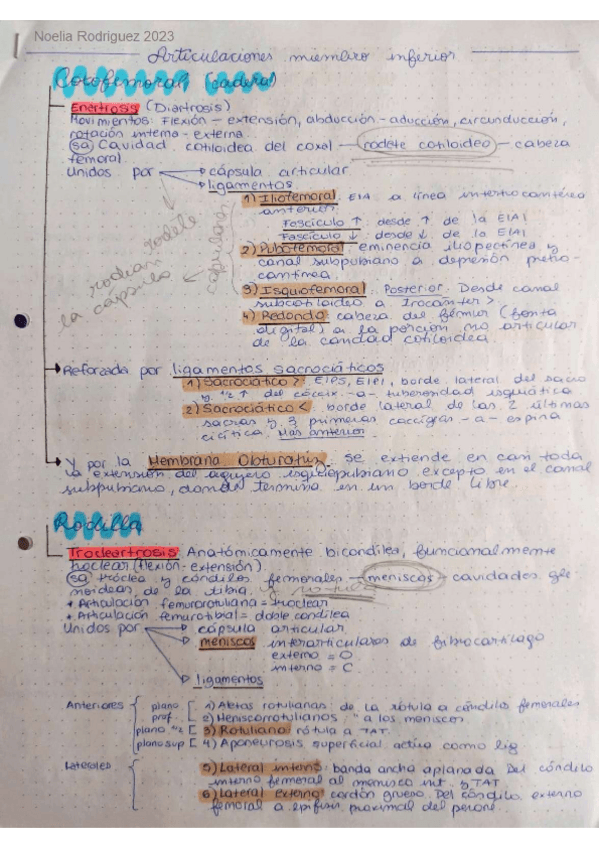 Noelia Rodriguez 2023
Articulaciones miembro inferior
Coxofemoral (cadera)
Enartrosis (Diartrosis)
Movimientos: Flexión - extensión, abducción - aducción, circunducción,
rotación interna - externa.
(SA) Cavidad cotiloidea del coxal - rodete cotiloideo - cabeza
femoral
Unidos por → cápsula articular
→ ligamentos
1) Iliofemoral. EIA a línea intertrocantérea
anterior.
Fascículo ↑: desde ↑ de la EIAI
Fascículo ↓: desde ↓ de la EIAI
2) Pubofemoral: eminencia iliopectínea y
canal subpubiano a depresión pretro-
cantínea.
3) Isquiofemoral. Posterior. Desde canal
subcotiloideo a Trocánter >
4) Redondo: cabeza del fémur (fosita
digital) a la porción no articular
de la cavidad cotiloidea
rodean rodete
la cápsula
capsulares
→ Reforzada por ligamentos sacrociáticos
1) Sacrociático >: EIPS, EIPI, borde lateral del sacro
y 1/2 ↑ del cóccix -a- tuberosidad isquiática
2) Sacrociático <: borde lateral de las 2 últimas
sacras y 3 primeras coccígeas -a- espina
ciática. Más anterior.
→ Y por la Membrana Obturatriz. Se extiende en casi toda
la extensión del agujero isquiopubiano excepto en el canal
subpubiano, donde termina en un borde libre.
Rodilla
Trocleartrosis. Anatómicamente bicondílea, funcionalmente
troclear (flexión-extensión).
(SA) tróclea y cóndilos femorales - meniscos - cavidades gle
noideas de la tibia. y rótula
• Articulación femurorotuliana = troclear
• Articulación femurotibial = doble condílea
Unidos por → cápsula articular
→ meniscos interarticulares de fibrocartílago
externo = O
interno = C
→ ligamentos
Anteriores { plano [ 1) Aletas rotulianas de la rótula a cóndilos femorales
prof. [ 2) Meniscorrotulianos " a los meniscos
plano 1/2 [ 3) Rotuliano: rótula a TAT.
plano sup [ 4) Aponeurosis superficial activa como lig
Laterales { 5) Lateral interno: banda ancha aplanada. Del cóndilo
interno femoral al menisco int. y TAT
6) Lateral externo: cordón grueso. Del cóndilo externo
femoral a epífisis proximal del peroné.